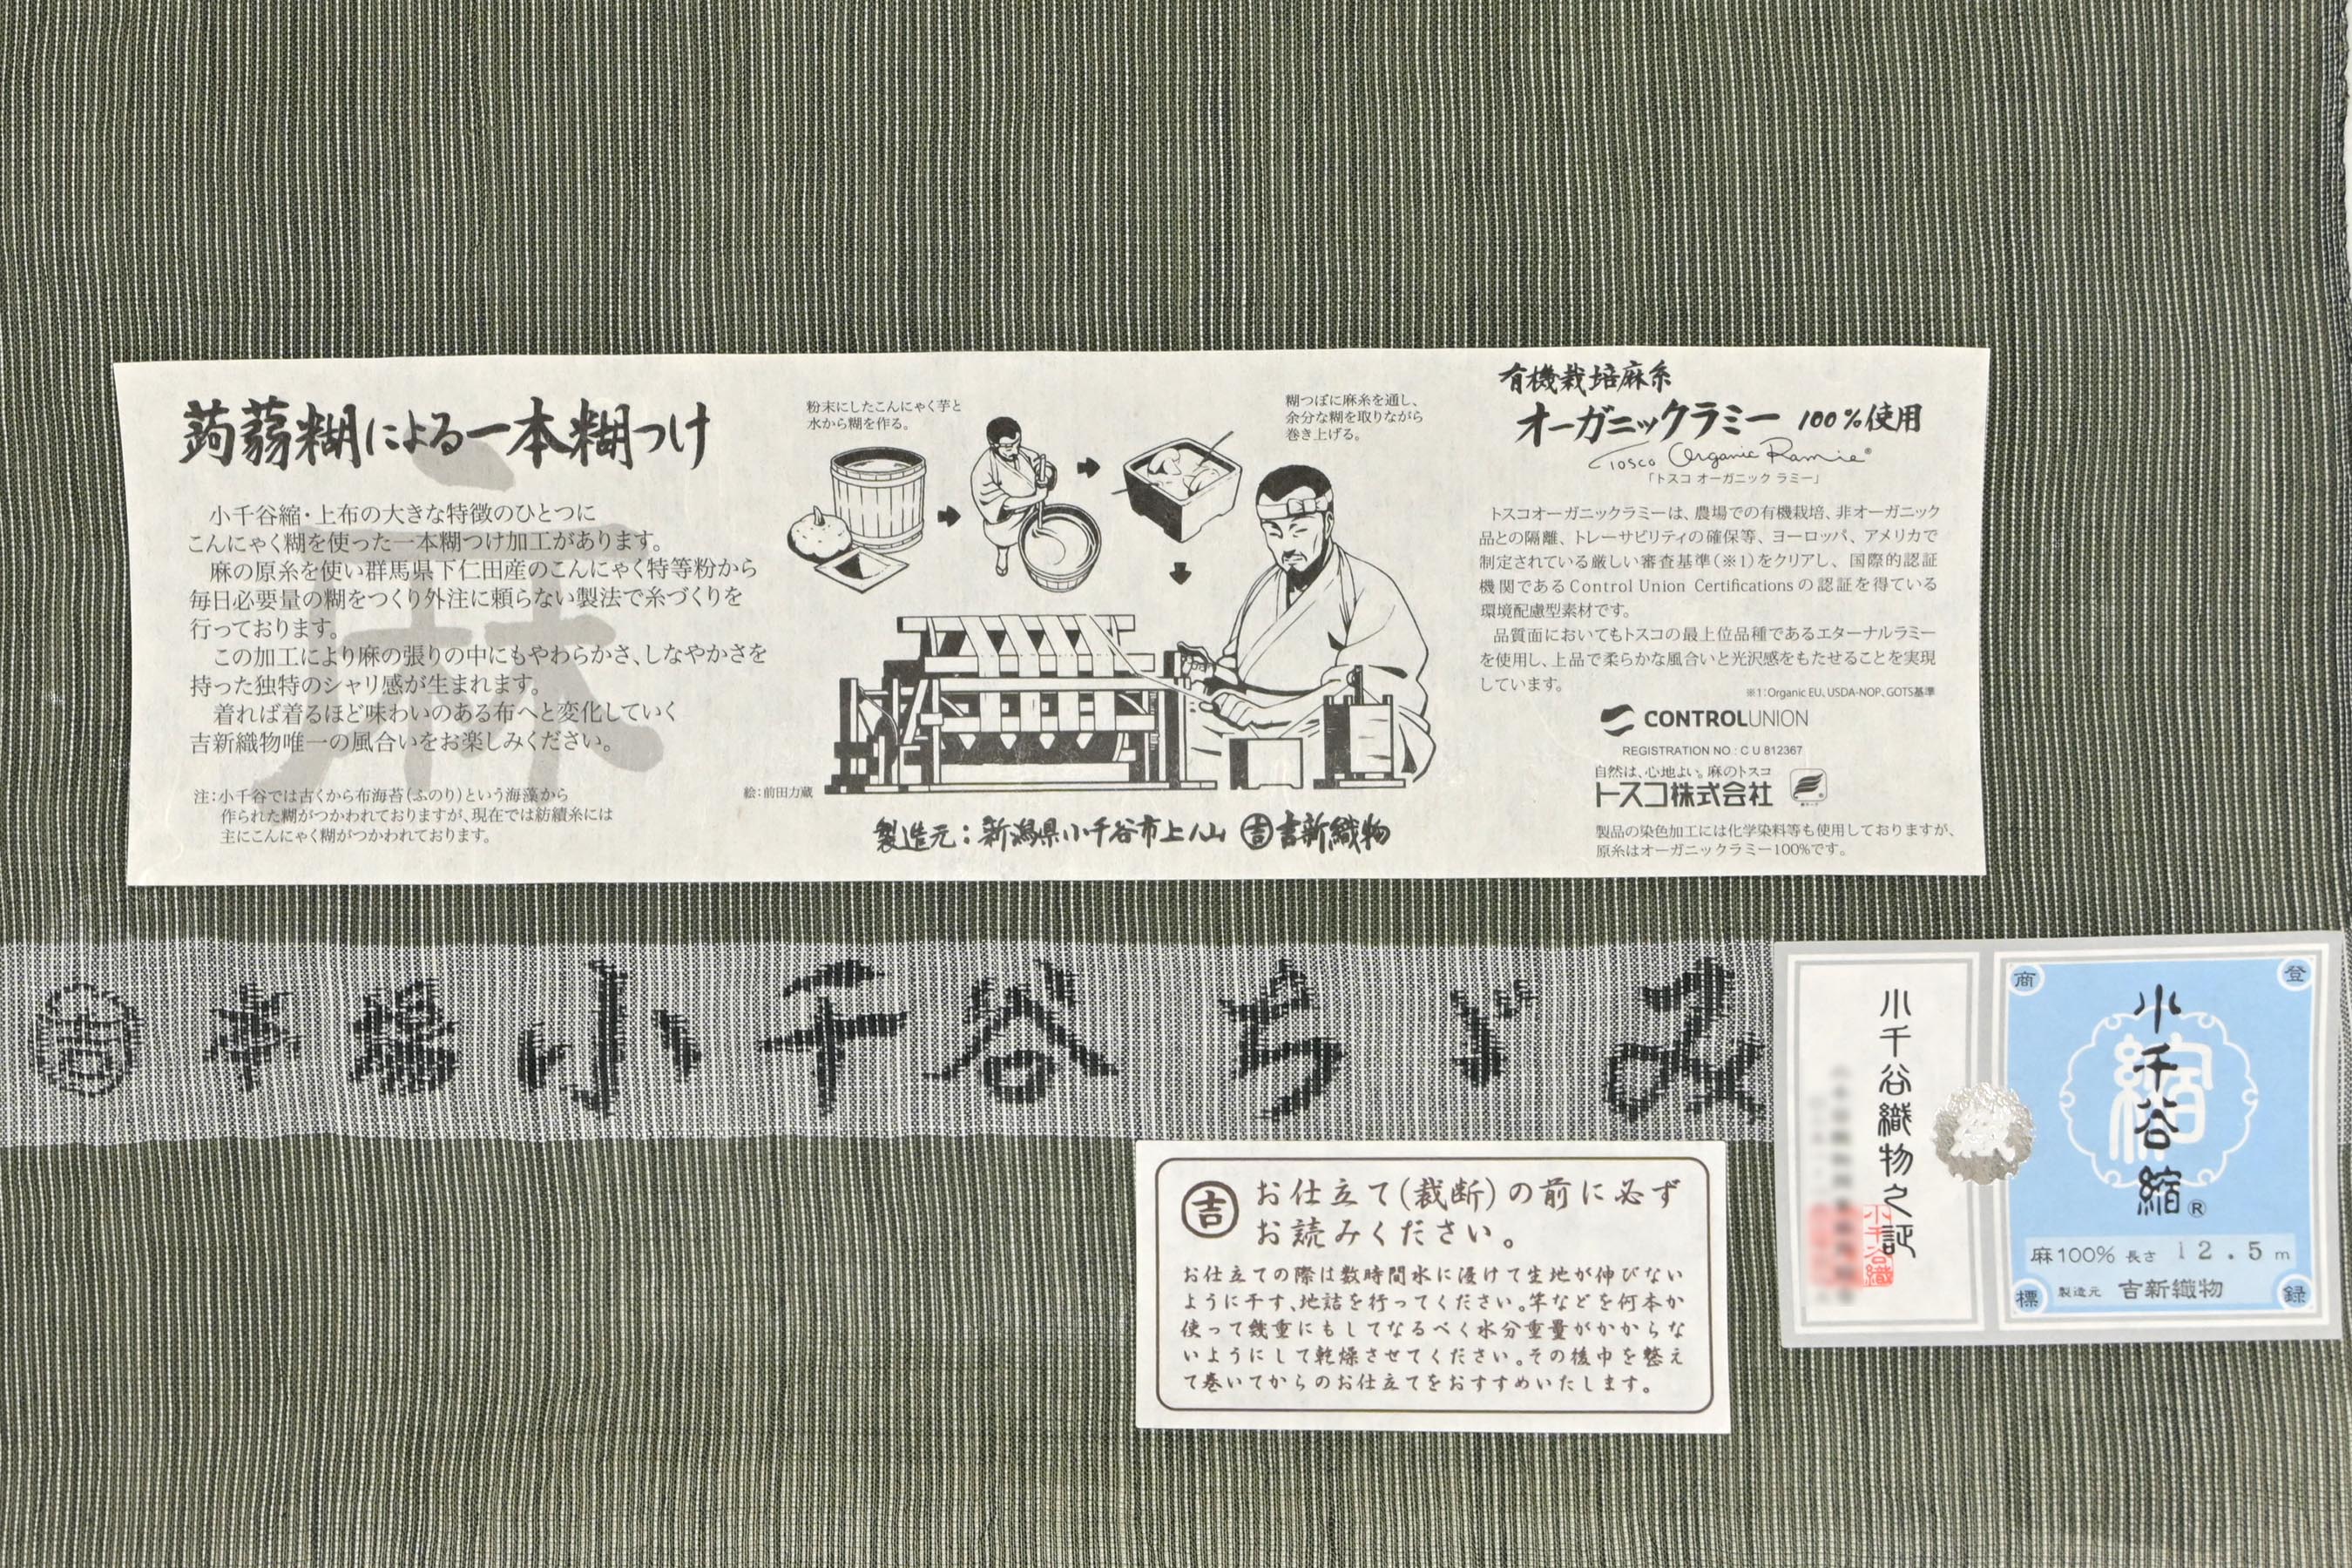 蒟蒻糊による一本糊つけ
小千谷縮・上布の大きな特徴のひとつに
こんにゃく糊を使った一本糊つけ加工があります。
麻の原糸を使い群馬県下仁田産のこんにゃく特等粉から
毎日必要量の糊をつくり外注に頼らない製法で糸づくりを
行っております。
この加工により麻の張りの中にもやわらかさ、しなやかさを
持った独特のシャリ感が生まれます。
着れば着るほど味わいのある布へと変化していく
吉新織物唯一の風合いをお楽しみください。
注：小千谷では古くから布海苔（ふのり）という海藻から
作られた糊がつかわれておりますが、現在では紡績糸には
主にこんにゃく糊がつかわれております。
麻
粉末にしたこんにゃく芋と
水から糊を作る。
糊つぼに麻糸を通し、
余分な糊を取りながら
巻き上げる。
絵：前田力蔵
製造元：新潟県小千谷市上ノ山 吉 吉新織物
有機栽培麻糸
オーガニックラミー 100%使用
Tosco Organic Ramie®
「トスコ オーガニック ラミー」
トスコオーガニックラミーは、農場での有機栽培、非オーガニック
品との隔離、トレーサビリティの確保等、ヨーロッパ、アメリカで
制定されている厳しい審査基準（※1）をクリアし、国際的認証
機関であるControl Union Certificationsの認証を得ている
環境配慮型素材です。
品質面においてもトスコの最上位品種であるエターナルラミー
を使用し、上品で柔らかな風合いと光沢感をもたせることを実現
しています。
※1：Organic EU、USDA-NOP、GOTS基準
CONTROLUNION
REGISTRATION NO : C U 812367
自然は、心地よい。麻のトスコ
トスコ株式会社
製品の染色加工には化学染料等も使用しておりますが、
原糸はオーガニックラミー100%です。
吉 本場 小千谷ちゞみ
吉
お仕立て（裁断）の前に必ず
お読みください。
お仕立ての際は数時間水に浸けて生地が伸びない
ように干す、地詰を行ってください。竿などを何本か
使って幾重にもしてなるべく水分重量がかからな
いようにして乾燥させてください。その後巾を整え
て巻いてからのお仕立てをおすすめいたします。
小千谷織物之証
小千谷織
登
録
商
標
縮
小千谷縮®
麻100% 長さ 12.5m
製造元 吉新織物